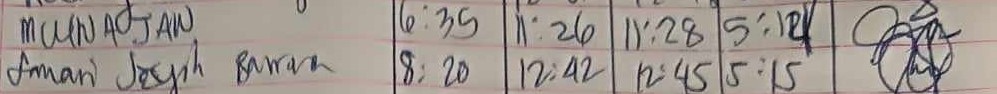 MUNAOJAN 6:35 11:26 11:28 5:12
Amari Joseph 8:20 12:42 12:45 5:15